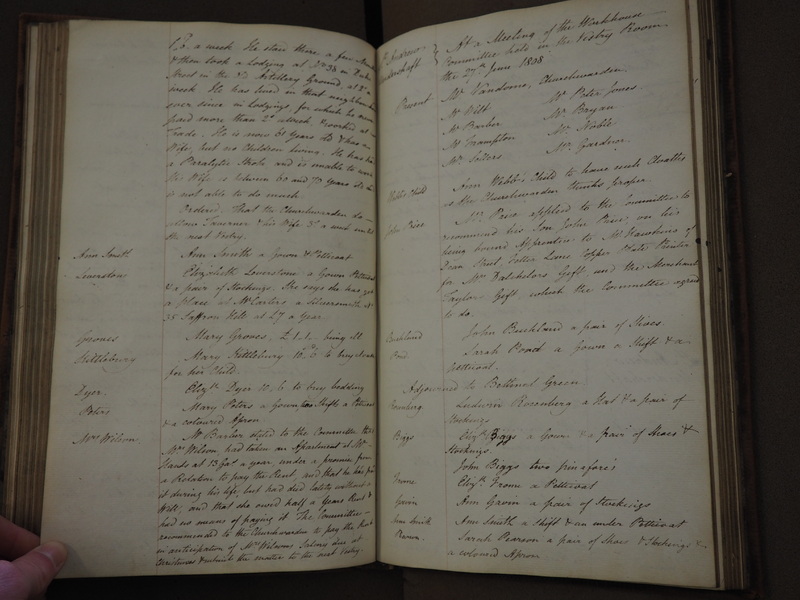 1/6 a week. He staid there a few
& then took a lodging at No 38 in Duke
Street in the Old Artillery Ground, at 2/ a
week. He has lived in that neighbourhood
ever since in lodgings for which he never
paid more than 2/ a week & worked at
Trade. He is now 61 Years old & has a
Wife, but no Children living. He has had
a Paralytic Stroke and is unable to work
His Wife is between 60 and 70 Years
is not able to do much
Ordered, That the Churchwarden do
allow & his Wife 3/ a week until
the next Vestry.
Ann Smith
Ann Smith a Gown & Petticoat
Leverstone
Elizabeth Leverstone a Gown Petticoat
& a pair of Stockings. She says she has got
a place at Mr Carters a Silversmith No
35 Saffron Hill at £7 a Year.
Groves
Mary Groves, £1.1. being ill
Kettlebury
Mary Kettlebury 10/6 to buy
for her Child.
Dyer
Elizth Dyer 10/6 to buy bedding
Peters
Mary Peters a Gown two Shifts a Petticoat
& a coloured Apron
Mrs Wilson
Mr Barber stated to the Committee that
Mrs Wilson had taken an Apartment at Mr
at 13 Gs a year under a promise from
a Relation to pay the Rent, and that he has paid
it during his life, but had died lately without a
Will, and that she owed half a Years Rent &
had no means of paying it. The Committee
recommended to the Churchwarden to pay the Rent
in anticipation of Mrs Wilsons Salary due at
Christmas & submit the matter to the next Vestry.
St Andrew
Undershaft
At a Meeting of the Workhouse
Committee held in the Vestry Room
the 27th June 1808
Present
Mr Vandome, Churchwarden
Mr Witt Mr Peter Jones
Mr Barber Mr Bryan
Mr Frampton Mr Noble
Mr Sellers Mr Gardner
Webb's Child
Ann Webb's Child to have such Cloaths
as the Churchwarden thinks proper.
John Price
Mr Price applied to the Committee to
recommend his Son John Price, on his
being bound Apprentice to Mr Hawkins of
Dean Street Fetter Lane Copper Plate Printer
for Mrs Batchelors Gift and the Merchant
Taylors Gift which the Committee agreed
to do.
Buckland
John Buckland a pair of Shoes.
Pond
Sarah Pond a Gown a Shift & a
Petticoat.
Adjourned to Bethnal Green.
Rosenberg
Ludwin Rosenberg a Hat & a pair of
Stockings
Biggs
Elizth Biggs a Gown & a pair of Shoes &
Stockings
John Biggs two pinafores
Frome
Elizth Frome a Petticoat
Gavin
Ann Gavin a pair of Stockings
Ann Smith
Ann Smith a Shift & an under Petticoat
Sarah Pearson a pair of Shoes & Stockings &
a colored Apron